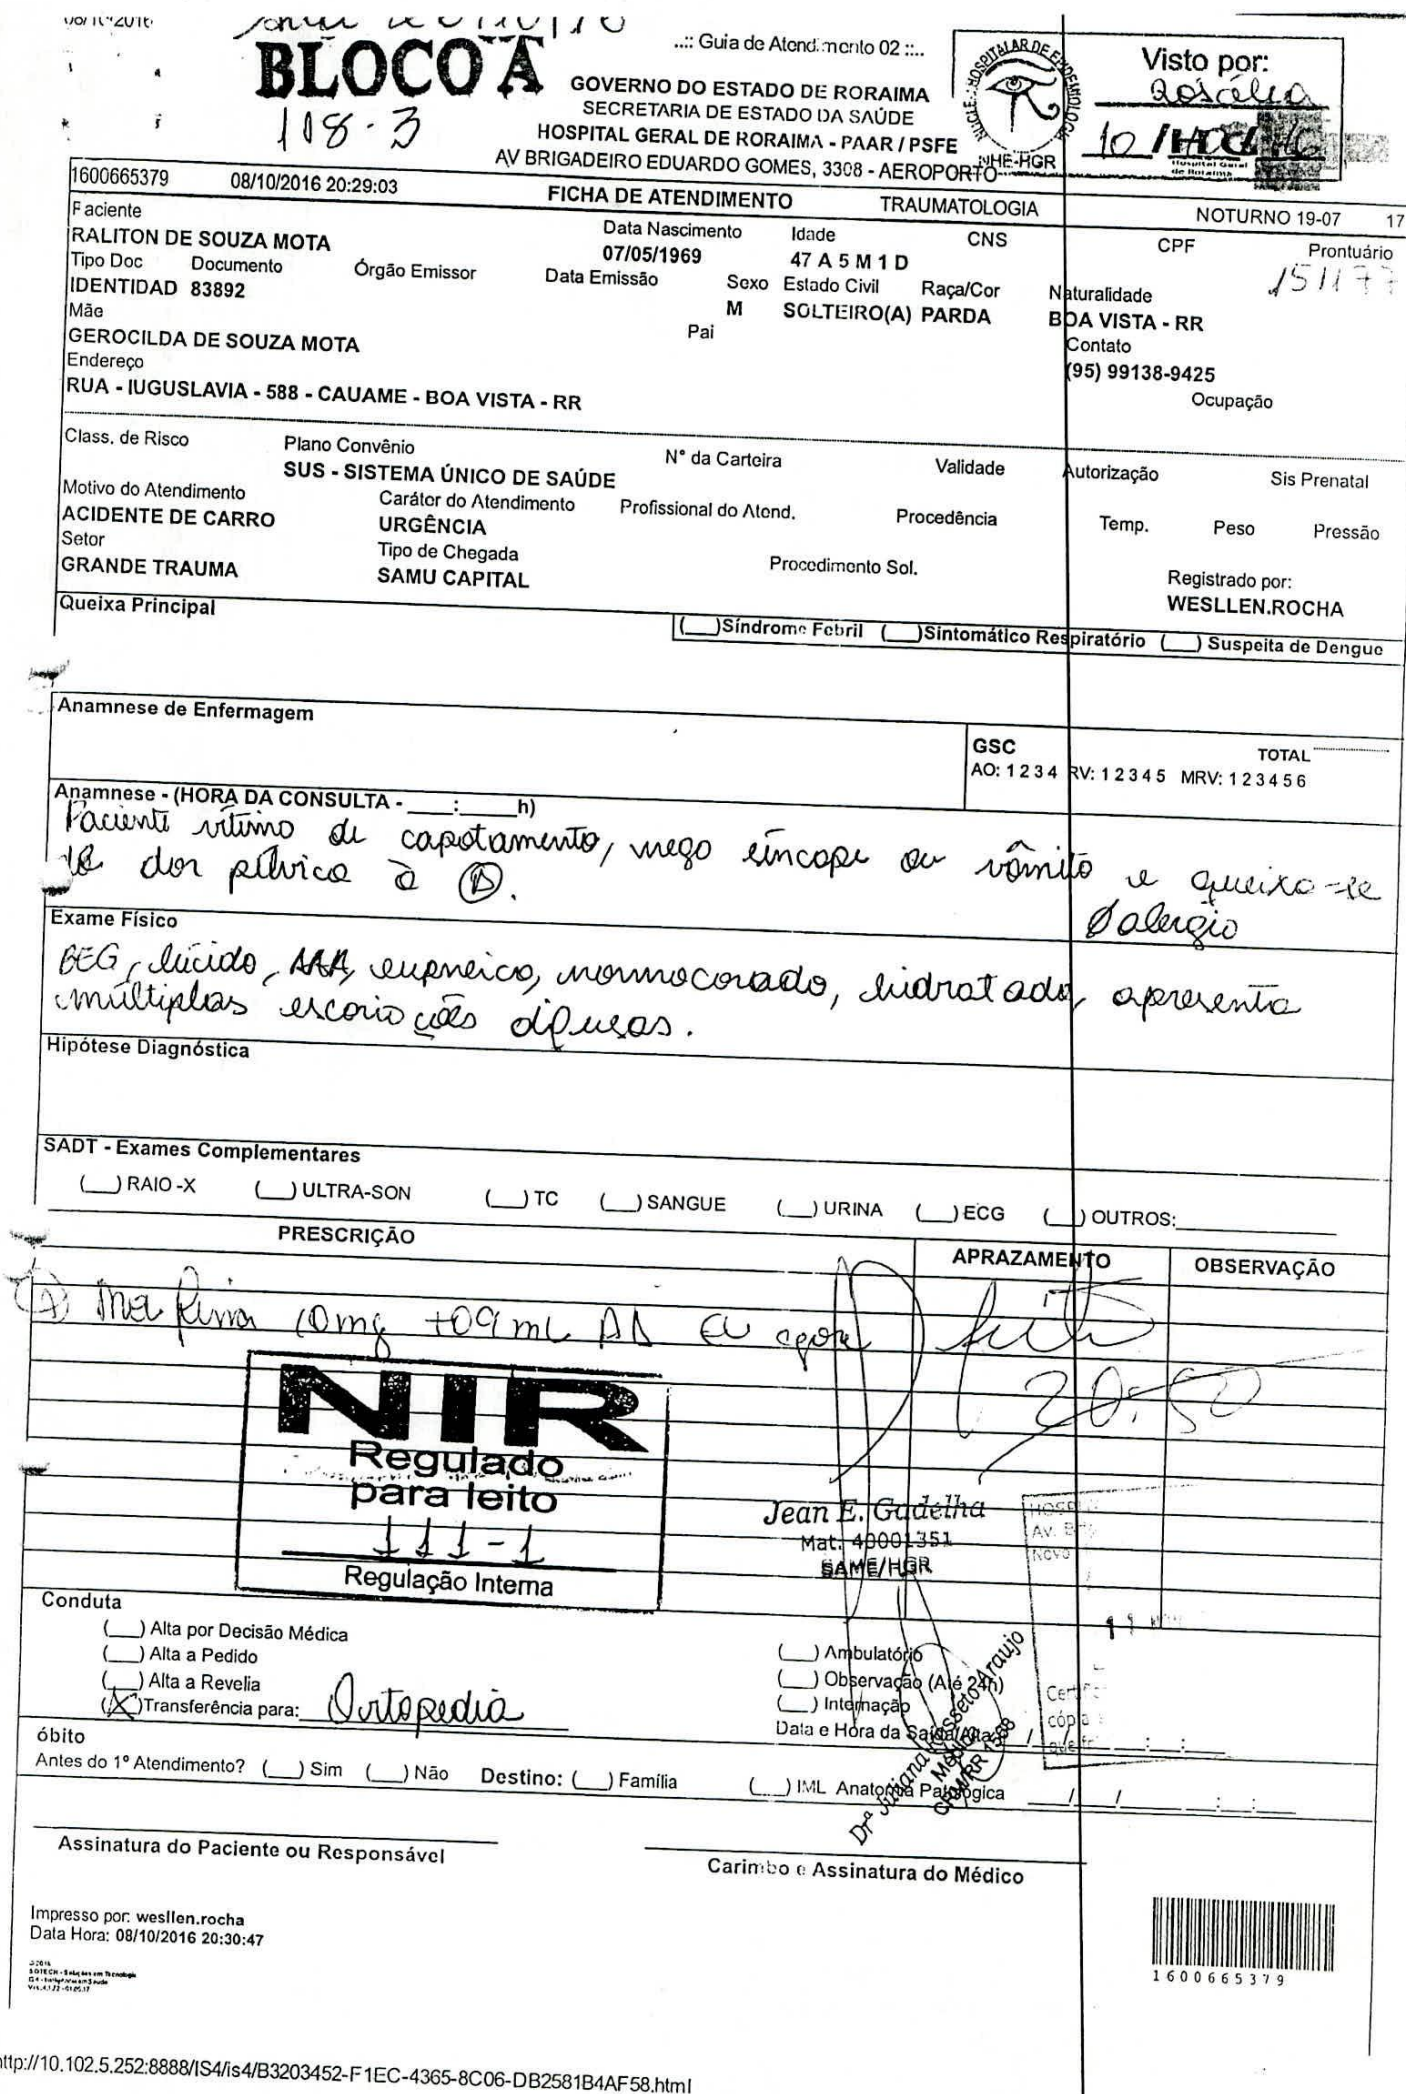 08/10/2016
BLOCO A
118-3
..:: Guia de Atendimento 02 ::..
GOVERNO DO ESTADO DE RORAIMA
SECRETARIA DE ESTADO DA SAÚDE
HOSPITAL GERAL DE RORAIMA - PAAR / PSFE
AV BRIGADEIRO EDUARDO GOMES, 3308 - AEROPORTO
NHE-HGR
Visto por:
Rosália
10
Hospital Geral
de Roraima
1600665379 08/10/2016 20:29:03 FICHA DE ATENDIMENTO TRAUMATOLOGIA NOTURNO 19-07 17
Paciente Data Nascimento Idade CNS CPF Prontuário
RALITON DE SOUZA MOTA 07/05/1969 47 A 5 M 1 D 151177
Tipo Doc Documento Órgão Emissor Data Emissão Sexo Estado Civil Raça/Cor Naturalidade
IDENTIDAD 83892 M SOLTEIRO(A) PARDA BOA VISTA - RR
Mãe Pai Contato
GEROCILDA DE SOUZA MOTA (95) 99138-9425
Endereço Ocupação
RUA - IUGUSLAVIA - 588 - CAUAME - BOA VISTA - RR
Class. de Risco Plano Convênio N° da Carteira Validade Autorização Sis Prenatal
SUS - SISTEMA ÚNICO DE SAÚDE
Motivo do Atendimento Caráter do Atendimento Profissional do Atend. Procedência Temp. Peso Pressão
ACIDENTE DE CARRO URGÊNCIA
Setor Tipo de Chegada Procedimento Sol. Registrado por:
GRANDE TRAUMA SAMU CAPITAL WESLLEN.ROCHA
Queixa Principal (___)Síndrome Febril (___)Sintomático Respiratório (___) Suspeita de Dengue
Anamnese de Enfermagem
GSC TOTAL
AO: 1 2 3 4 RV: 1 2 3 4 5 MRV: 1 2 3 4 5 6
Anamnese - (HORA DA CONSULTA - ___:____h)
Paciente vítima de capotamento, nega síncope ou vômito e queixa-se
de dor pélvica à (D).
Ø alergia
Exame Físico
BEG, lúcido, AAA, eupneico, normocorado, hidratado, apresenta
múltiplas escoriações difusas.
Hipótese Diagnóstica
SADT - Exames Complementares
(___) RAIO -X (___) ULTRA-SON (___) TC (___) SANGUE (___) URINA (___) ECG (___) OUTROS:________
PRESCRIÇÃO APRAZAMENTO OBSERVAÇÃO
Morfina 10mg +09mL AD EV agora
feito
20:50
NIR
Regulado
para leito
111-1
Regulação Interna
Jean E. Gadelha
Mat: 40001351
SAME/HGR
Conduta
(___) Alta por Decisão Médica
(___) Alta a Pedido
(___) Alta a Revelia
(X)Transferência para: Ortopedia
(___) Ambulatório
(___) Observação (Até 24h)
(___) Internação
Data e Hora da Saída/Alta: __/__/____ __:__:__
óbito
Antes do 1º Atendimento? (___) Sim (___) Não Destino: (___) Família (___) IML Anatomia Patológica ____/____/____ __:__:__
Médica
CRM/RR 1588
Assinatura do Paciente ou Responsável
Carimbo e Assinatura do Médico
Impresso por: wesllen.rocha
Data Hora: 08/10/2016 20:30:47
1600665379
http://10.102.5.252:8888/IS4/is4/B3203452-F1EC-4365-8C06-DB2581B4AF58.html